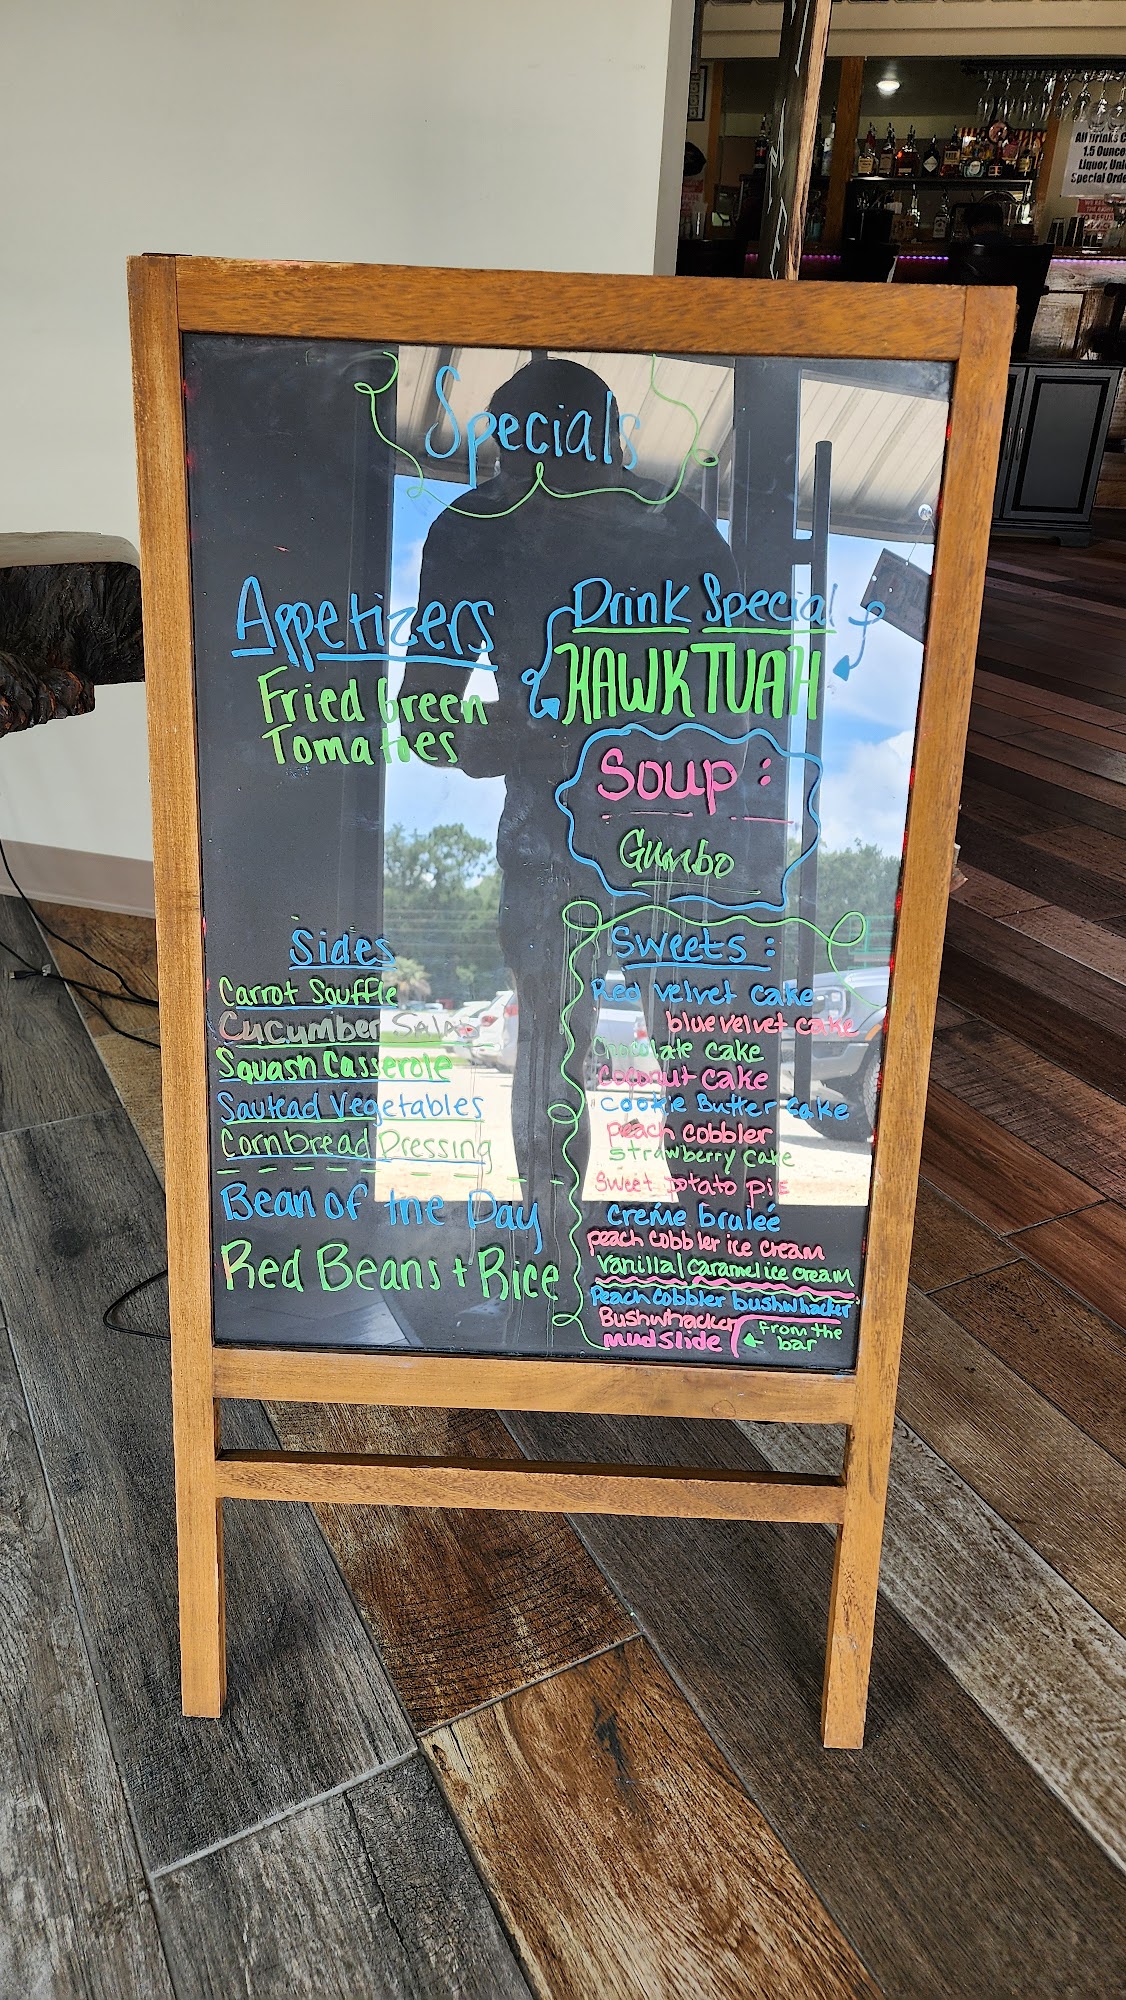 Specials
Appetizers
Fried Green
Tomatoes
Drink Special
HAWK TUAH
Soup :
Gumbo
Sides
Carrot Souffle
Cucumber Salad
Squash Casserole
Sautead Vegetables
Cornbread Dressing
Bean of the Day
Red Beans + Rice
Sweets :
Red velvet cake
blue velvet cake
Chocolate cake
Coconut cake
Cookie Butter Cake
peach cobbler
strawberry cake
sweet potato pie
creme bruleé
peach cobbler ice cream
vanilla/caramel ice cream
Peach cobbler bushwhacker
Bushwhacker
mudslide
from the
bar
All drinks
1.5 Ounce
Liquor,
Special